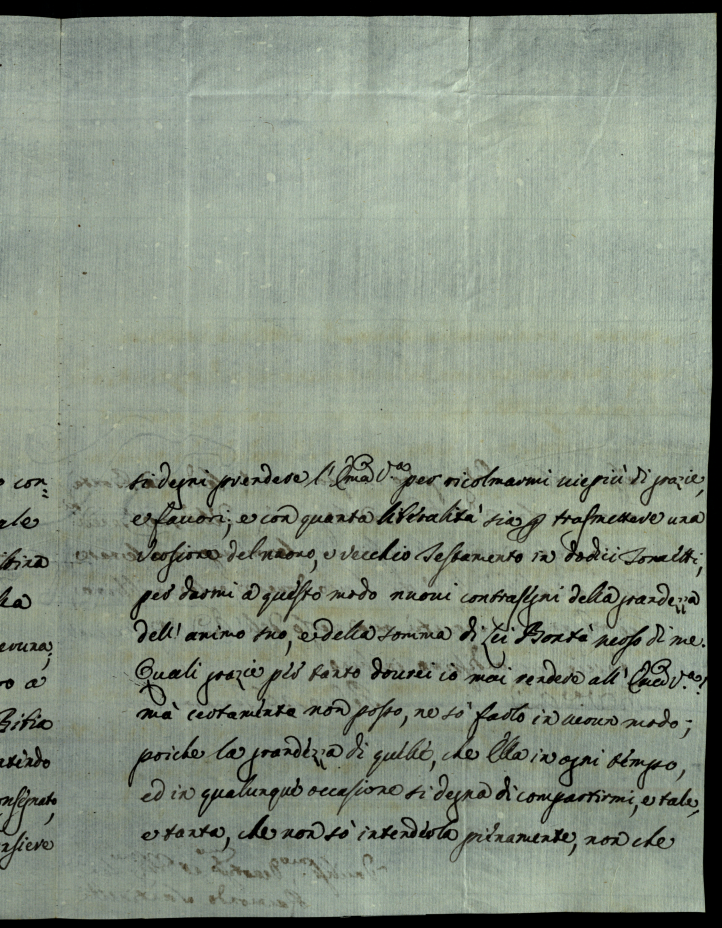 o con=
ale
stina
ka
eruna,
ro a
Bibia
ntindo
onsegnato,
nsieve
si degni prendere l'Em.a V.ra per ricolmarmi viepiù di grazie,
e favori; e con quanta liberalità sia p trasmettere una
Versione del nuovo, e vecchio Testamento in dodici Tometti,
per darmi a questo modo nuovi contrassegni della grandezza
dell'animo suo, e della somma di Lei Bontà verso di me.
Quali grazie per tanto dovrei io mai rendere all'Em.a V.ra!
mà certamente non posso, ne sò farlo in veron modo;
poiche la grandezza di quelle, che Ella in ogni tempo,
ed in qualunque occasione si degna di compartirmi, e tale,
e tanta, che non sò intenderla pienamente, non che